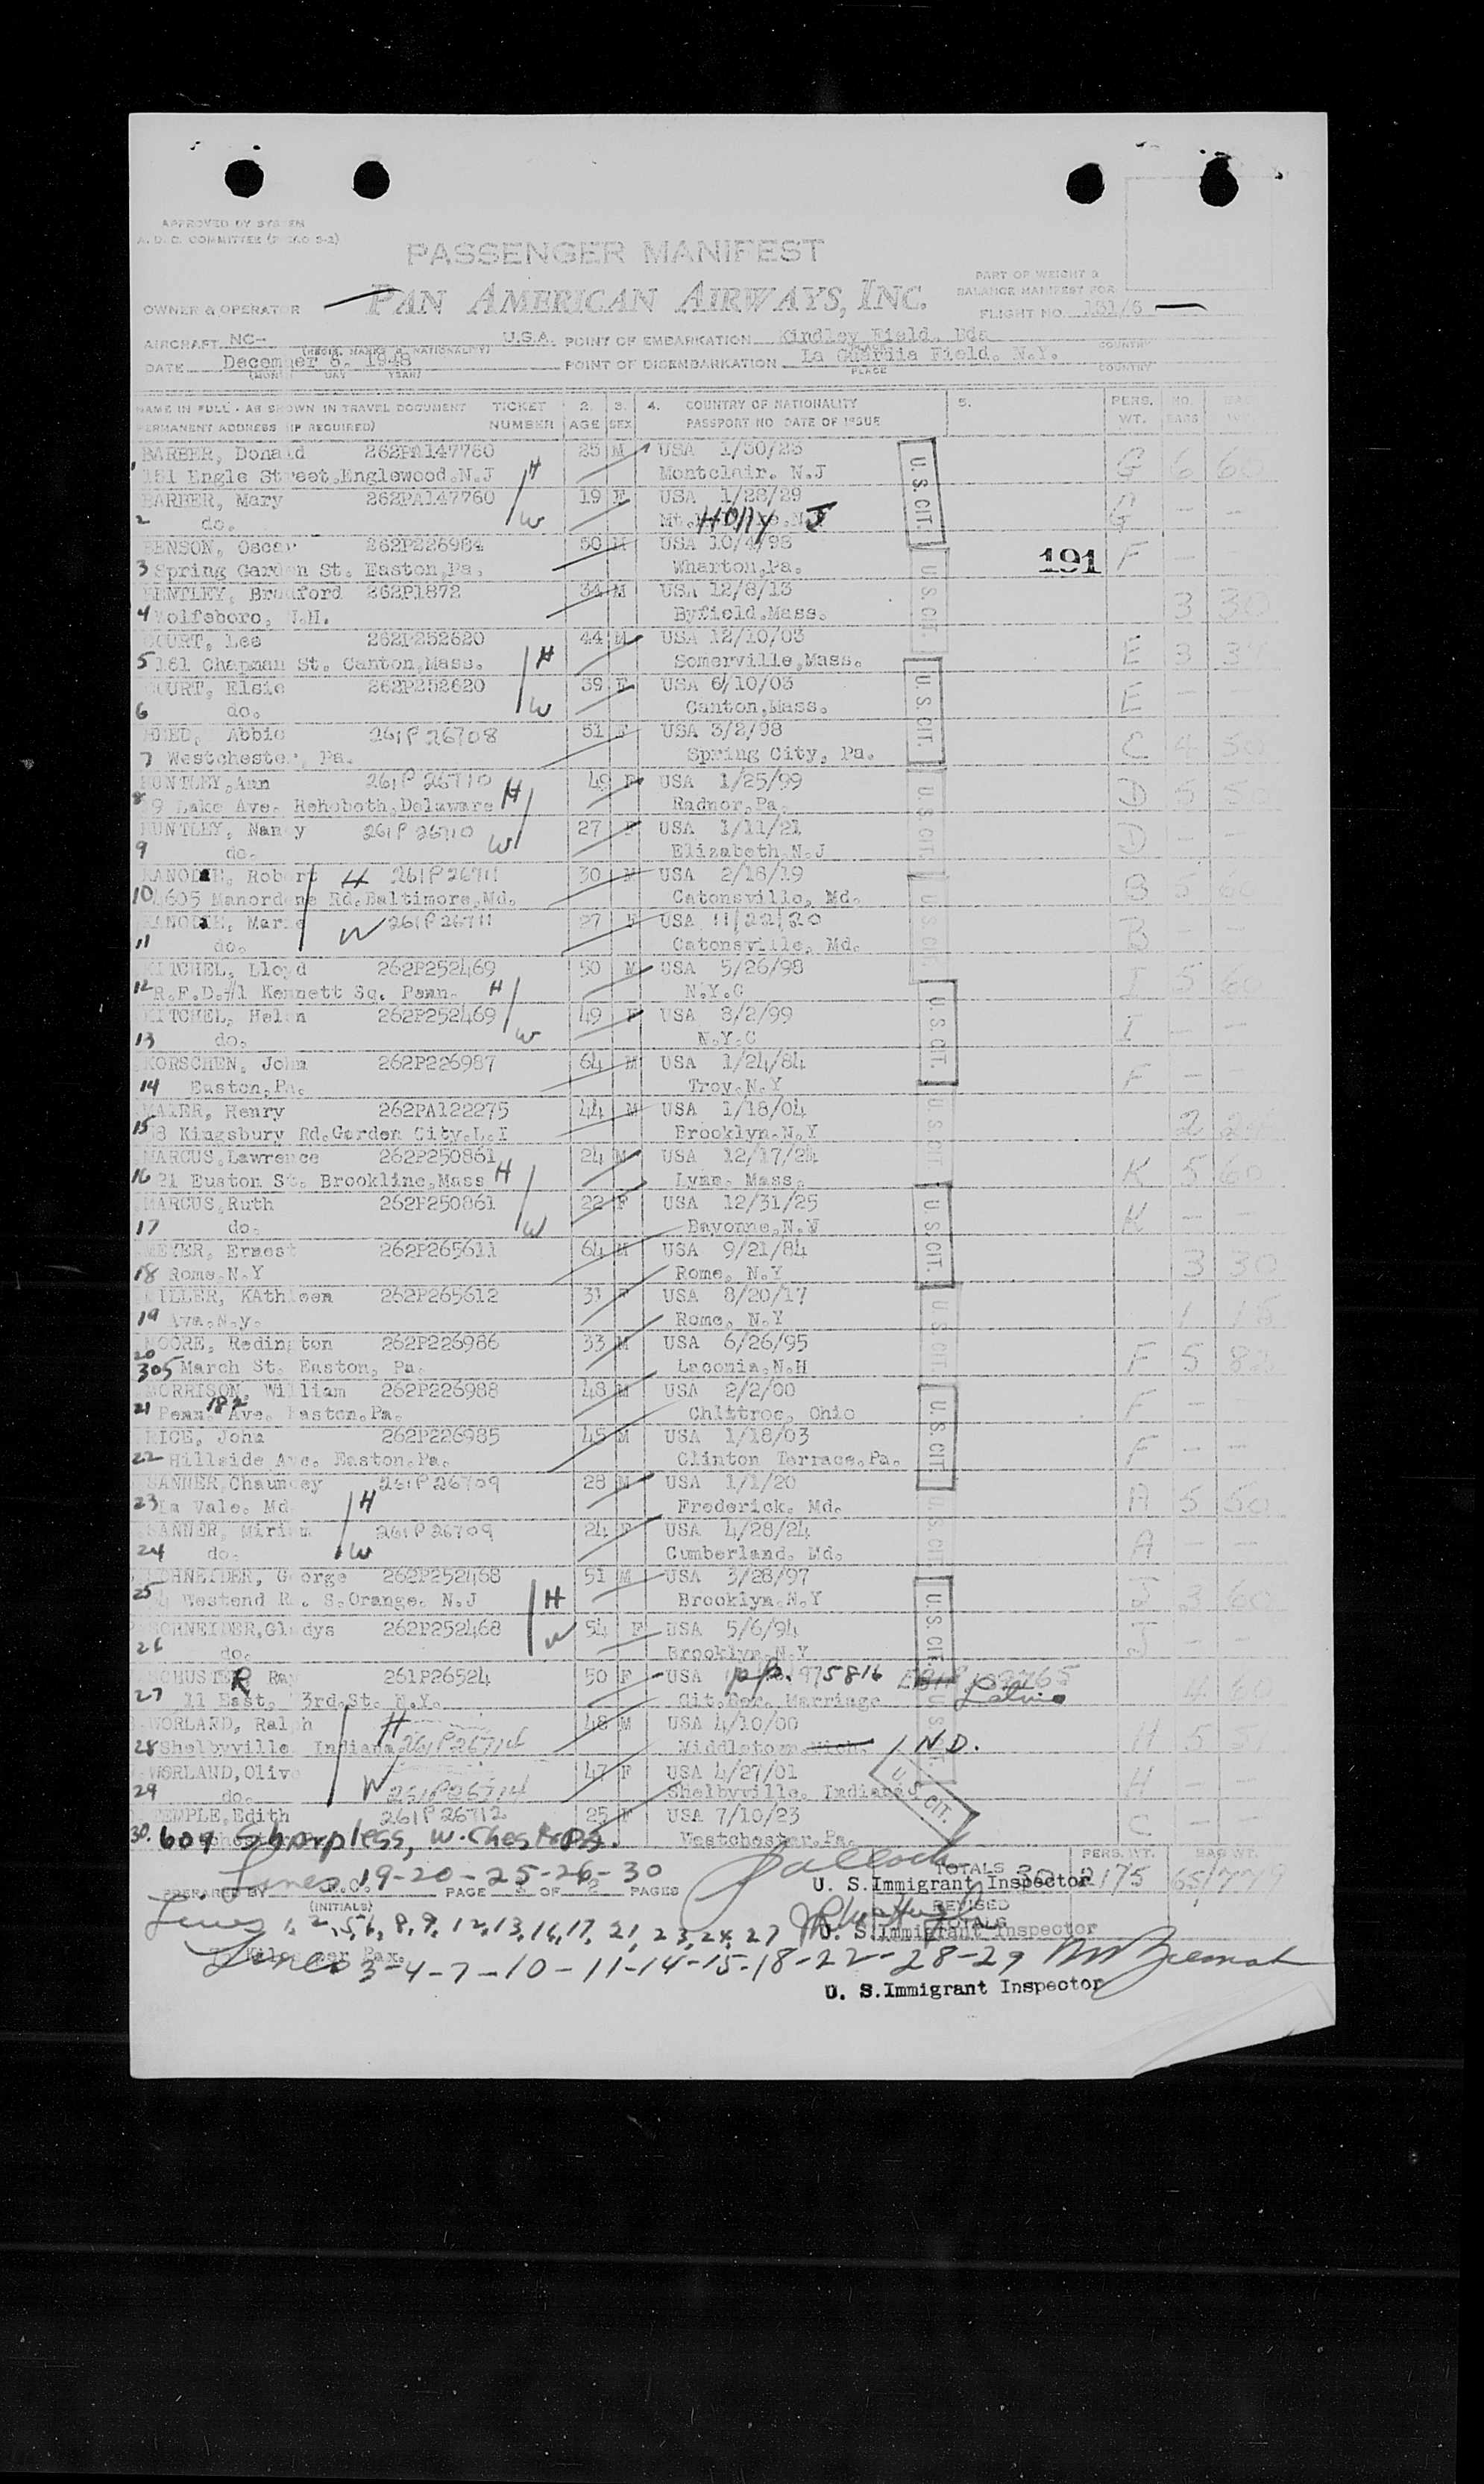 APPROVED BY SYSTEM
PASSENGER MANIFEST
PART OF WEIGHT &
BALANCE MANIFEST FOR
OWNER & OPERATOR PAN AMERICAN AIRWAYS, INC. FLIGHT NO. 131/5
AIRCRAFT NC- U.S.A. POINT OF EMBARKATION Kindley Field, Bda
(REGIS. MARKS & NATIONALITY) PLACE COUNTRY
DATE December 8, 1948 POINT OF DISEMBARKATION La Guardia Field, N.Y.
(MONTH DAY YEAR) PLACE COUNTRY
NAME IN FULL - AS SHOWN IN TRAVEL DOCUMENT TICKET 2. 3. 4. COUNTRY OF NATIONALITY 5. PERS. NO.
PERMANENT ADDRESS (IF REQUIRED) NUMBER AGE SEX PASSPORT NO DATE OF ISSUE WT. BAGS
BARBER, Donald 262PA147760 25 M USA 1/30/23 G 6 60
151 Engle Street, Englewood, N.J H Montclair, N.J
BARBER, Mary 262PA147760 19 F USA 1/28/29 G - -
2 do. W Mt. Holly J
BENSON, Oscar 262P226984 50 M USA 10/4/98 191 F - -
3 Spring Garden St. Easton, Pa. Wharton, Pa.
BENTLEY, Bradford 262P1872 34 M USA 12/8/13 3 30
4 Wolfeboro, N.H. Byfield, Mass.
COURT, Lee 262P252620 44 M USA 12/10/03 E 3
5 181 Chapman St. Canton, Mass. H Somerville, Mass.
COURT, Elsie 262P252620 39 F USA 6/10/03 E - -
6 do. W Canton, Mass.
Abbie 261P26708 51 F USA 3/2/98 C 4 50
7 Westchester, Pa. Spring City, Pa.
HUNTLEY, Ann 261P26710 49 F USA 1/25/99 D 5 50
8 9 Lake Ave. Rehoboth, Delaware H Radnor, Pa.
HUNTLEY, Nancy 261P26710 27 F USA 1/11/21 D - -
9 do. W Elizabeth, N.J
Robert H 261P26711 30 M USA 2/18/19 B 5 60
10 Rd. Baltimore, Md. Catonsville, Md.
Marie W 261P26711 27 F USA 11/22/20 B - -
11 do. Catonsville, Md.
KITCHEL, Lloyd 262P252469 50 M USA 5/26/98 I 5 60
12 R.F.D.#1 Kennett Sq. Penn. H N.Y.C
KITCHEL, Helen 262P252469 49 F USA 8/2/99 I - -
13 do. W N.Y.C
KORSCHEN, John 262P226987 64 M USA 1/24/84 F - -
14 Easton, Pa. Troy, N.Y
MAIER, Henry 262PA122275 44 M USA 1/18/04 2
15 8 Kingsbury Rd. Garden City, L.I Brooklyn, N.Y
MARCUS, Lawrence 262P250861 24 M USA 12/17/24 K 5 60
16 21 Euston St. Brookline, Mass H Lynn, Mass.
MARCUS, Ruth 262P250861 22 F USA 12/31/25 K - -
17 do. W Bayonne, N.J
MEYER, Ernest 262P265611 64 M USA 9/21/84 3 30
18 Rome, N.Y Rome, N.Y
MILLER, KAthleen 262P265612 31 F USA 8/20/17 1 15
19 Ava. N.y. Rome, N.Y
MOORE, Redington 262P226986 33 M USA 6/26/95 F 5
20 305 March St. Easton, Pa. Laconia, N.H
MORRISON, William 262P226988 48 M USA 2/2/00 F - -
21 182 Penn. Ave. Easton, Pa. Ohio
RICE, John 262P226985 45 M USA 1/18/03 F - -
22 Hillside Ave. Easton, Pa. Clinton Terrace, Pa.
SANNER, Chauncey 261P26709 28 M USA 1/1/20 A 5 50
23 La Vale, Md H Frederick, Md.
SANNER, Miriam 261P26709 24 F USA 4/28/24 A - -
24 do. W Cumberland, Md.
SCHNEIDER, George 262P252468 51 M USA 3/28/97 J 3 60
25 Westend R. S. Orange, N.J H Brooklyn, N.Y
SCHNEIDER, Gladys 262P252468 54 F USA 5/6/94 J - -
26 do. W Brooklyn, N.Y
SCHUSTER Ray 261P26524 50 F USA p.p. 975816 4 60
27 11 East, 3rd. St. N.Y. Cit. Der. Marriage
WORLAND, Ralph H 48 M USA 4/10/00 H 5
28 Shelbyville Indiana 261P26714 Middletown, Mich. IND.
WORLAND, Olive 47 F USA 4/27/01 H - -
29 do. W 261P26714 Shelbyville, Indiana
TEMPLE, Edith 261P26712 25 F USA 7/10/23 C - -
30. 609 Sharpless, W. Chester Pa. Westchester, Pa.
U.S. CIT.
U.S. CIT.
U.S. CIT.
U.S. CIT.
U.S. CIT.
U.S. CIT.
U.S. CIT.
U.S. CIT.
U.S. CIT.
U.S. CIT.
U.S. CIT.
U.S. CIT.
U.S. CIT.
Lines 19-20-25-26-30 TOTALS 30 2175
PERS. WT. BAG WT.
PREPARED BY PAGE OF 2 PAGES U. S. Immigrant Inspector
(INITIALS) REVISED TOTALS
Lines 1, 2, 5, 6, 8, 9, 12, 13, 16, 17, 21, 23, 24, 27 U. S. Immigrant Inspector
Lines 3-4-7-10-11-14-15-18-22-28-29
U. S. Immigrant Inspector